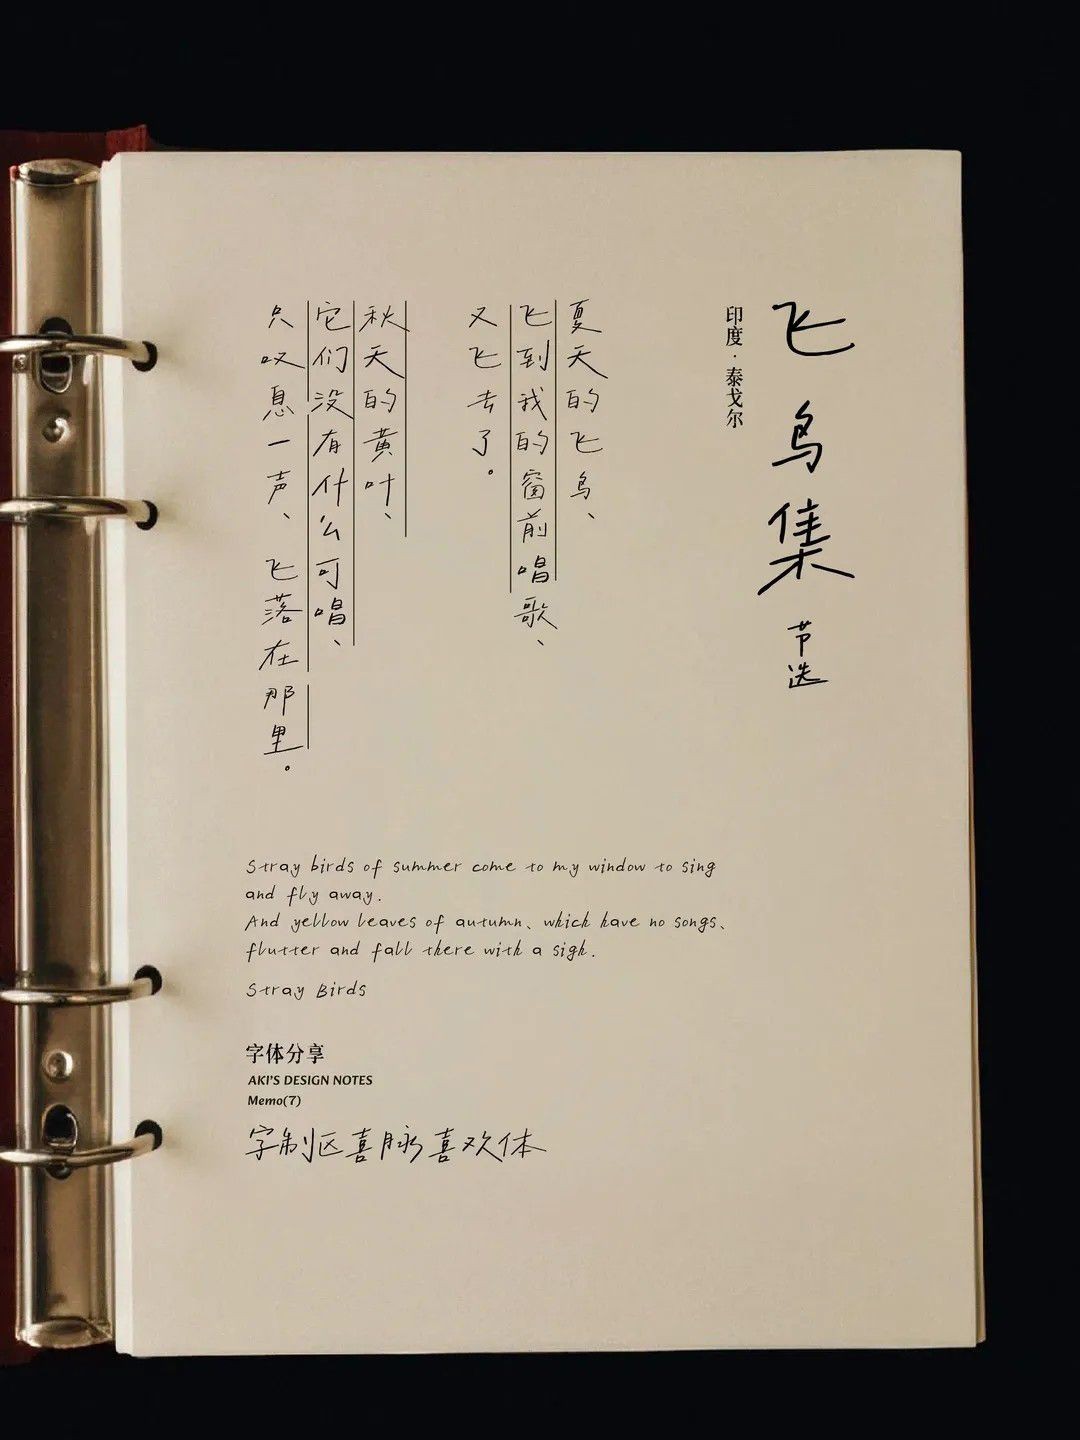 飞鸟集 节选
印度·泰戈尔
夏天的飞鸟、
飞到我的窗前唱歌、
又飞去了。
秋天的黄叶、
它们没有什么可唱、
只叹息一声、飞落在那里。
Stray birds of summer come to my window to sing
and fly away.
And yellow leaves of autumn、which have no songs、
flutter and fall there with a sigh.
Stray Birds
字体分享
AKI'S DESIGN NOTES
Memo(7)
字制区喜脉喜欢体